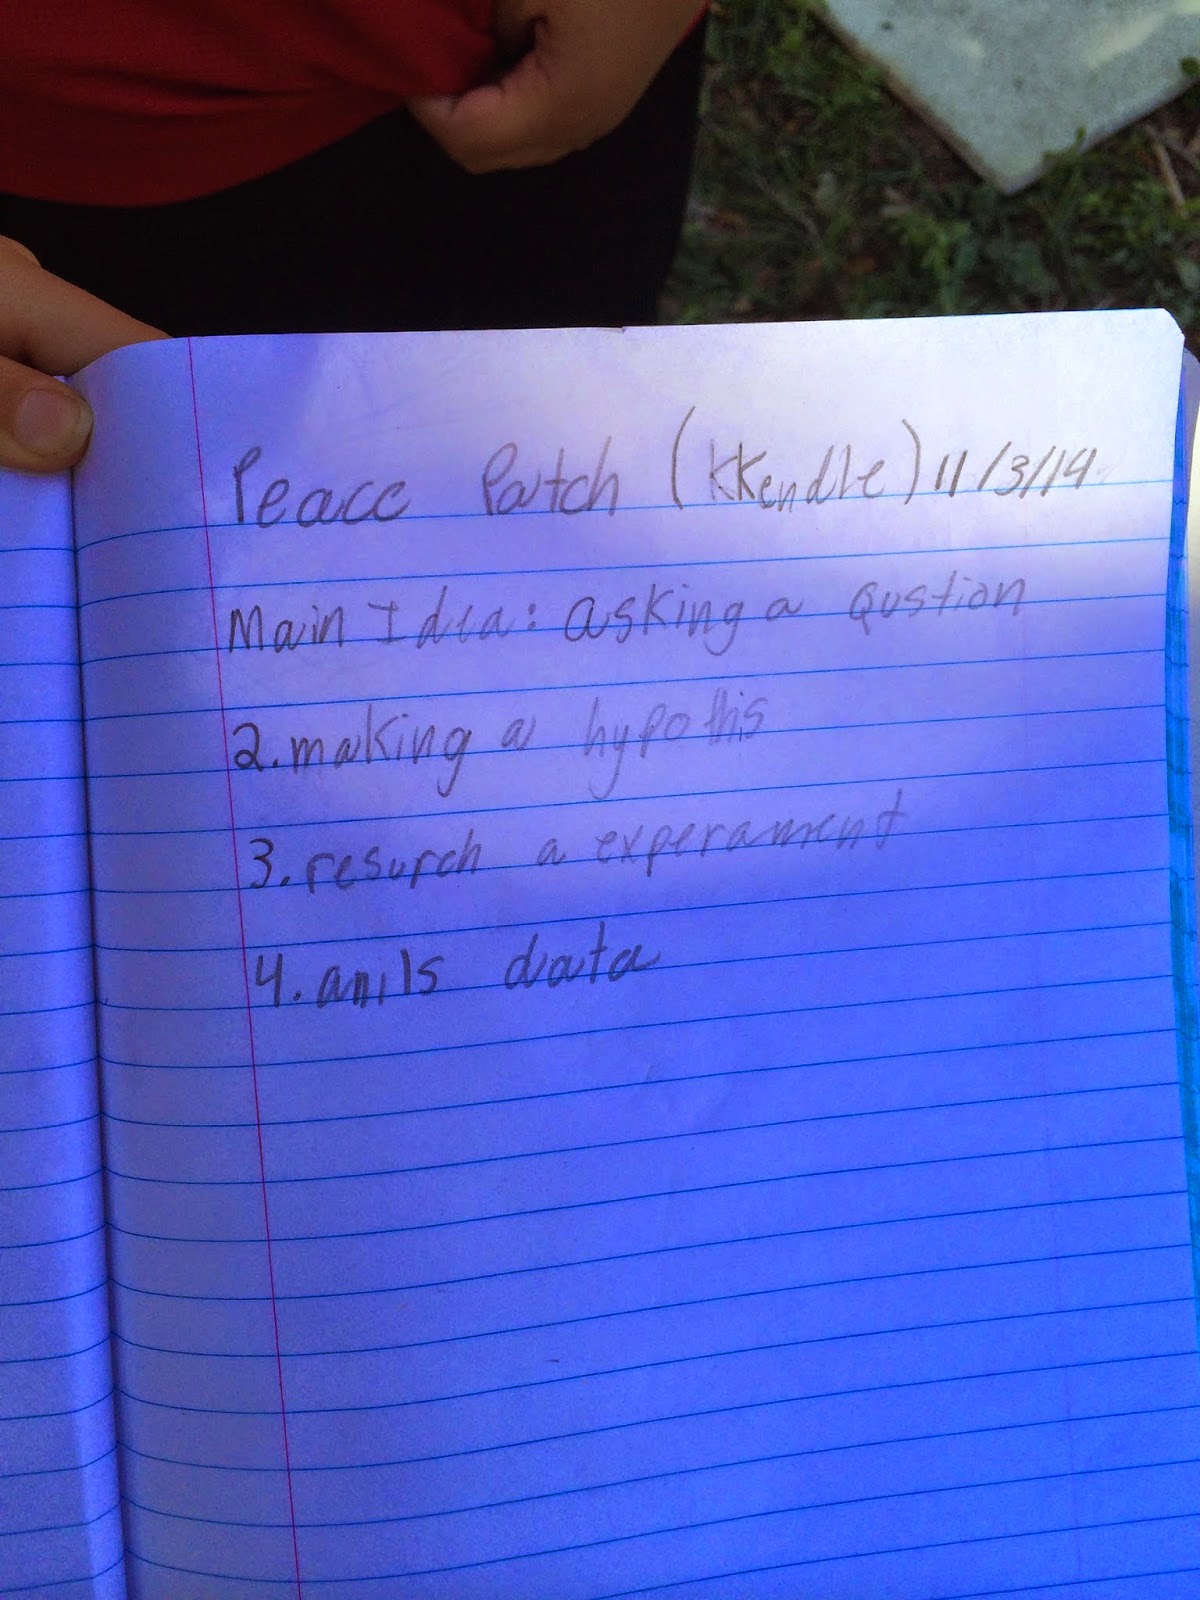 Peace Patch (KKendle) 11/3/14
Main Idea: asking a qustion
2. making a hypothis
3. resurch a experament
4. anils data